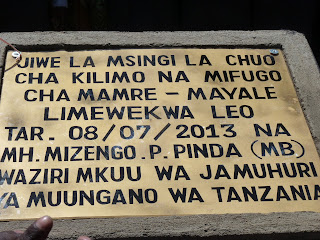 JIWE LA MSINGI LA CHUO
CHA KILIMO NA MIFUGO
CHA MAMRE - MAYALE
LIMEWEKWA LEO
TAR. 08/07/2013 NA
MH. MIZENGO .P. PINDA (MB)
WAZIRI MKUU WA JAMUHURI
YA MUUNGANO WA TANZANIA